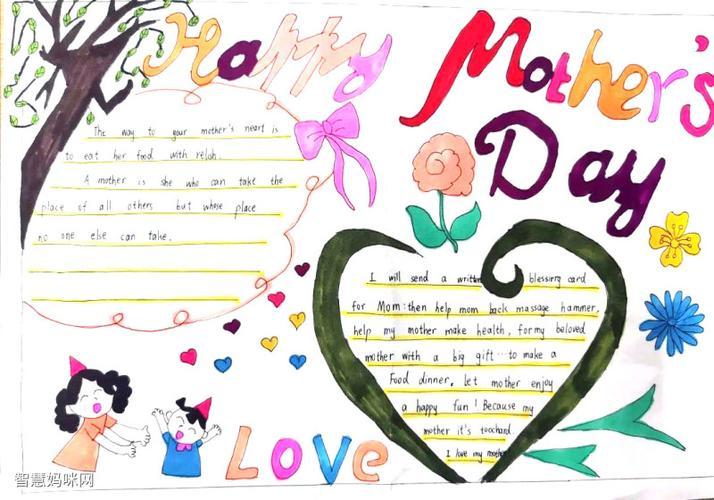 Happy Mother's
Day
The way to your mother's heart is
to eat her food with relsh.
A mother is she who can take the
place of all others but whose place
no one else can take.
I will send a written blessing card
for Mom: then help mom back massage hammer,
help my mother make health, for my beloved
mother with a big gift ... to make a
Food dinner. Let mother enjoy
a happy fun! Because my
mother it's toochard.
I love my mother
LOVe
智慧妈咪网